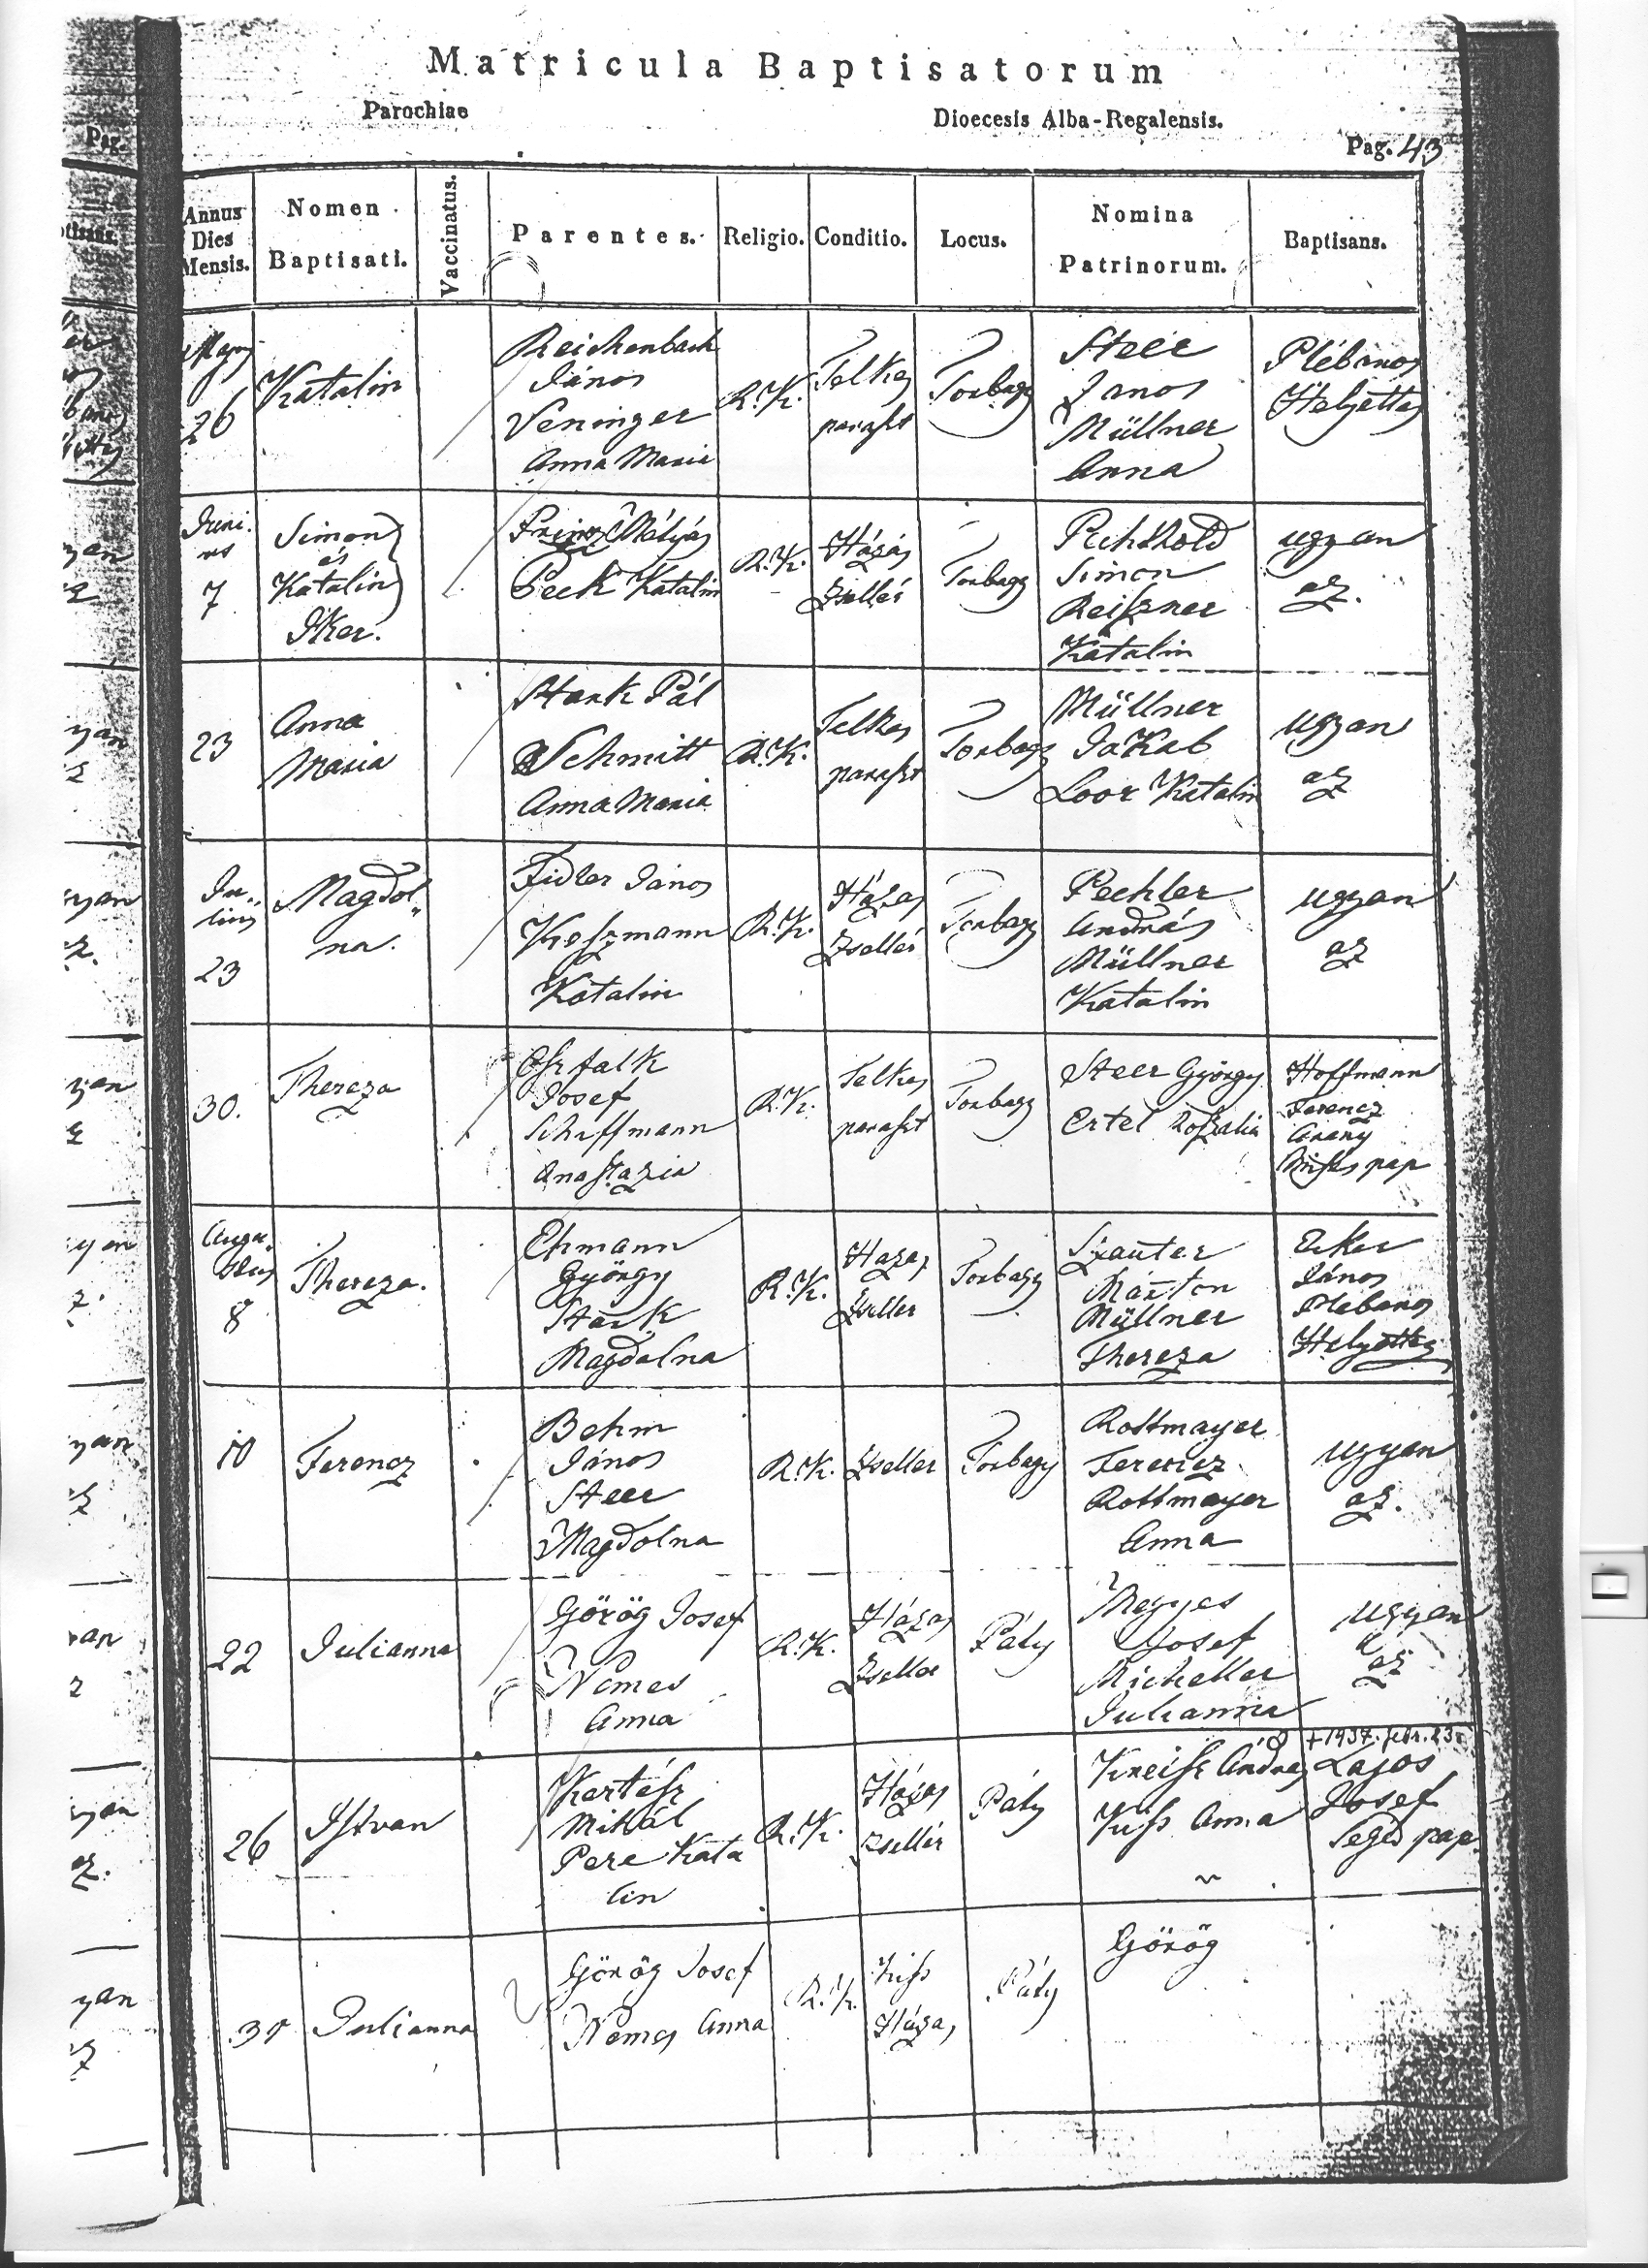 Matricula Baptisatorum
Parochiae
Dioecesis Alba-Regalensis.
Pag.
Pag. 43
Annus Dies Mensis.
Nomen Baptisati.
Vaccinatus.
Parentes.
Religio.
Conditio.
Locus.
Nomina Patrinorum.
Baptisans.
26
Katalin
Reichenbach
János
Veninger
Anna Maria
R.K.
Telkes
paraszt
Torbagy
Steer
Janos
Müllner
Anna
Plébanos
Helyettes
Juni.
us
7
Simon
és
Katalin
Iker.
Prinoz Mátyás
Peck Katalin
R.K.
Házás
Zsellér
Torbagy
Simon
Reiszner
Katalin
ugyan
az.
23
Anna
Maria
Stark Pál
Schmitt
Anna Maria
R.K.
Telkes
paraszt
Torbagy
Müllner
Jakab
Loor Katalin
ugyan
az
Ju„
lius
23
Magdol„
na.
Fidler János
Koszmann
Katalin
R.K.
Házas
Zsellér
Torbagy
Pechler
András
Müllner
Katalin
ugyan
az
30.
Thereza
Josef
Schiffmann
Anasztazia
R.K.
Telkes
paraszt
Torbagy
Steer György
Ertel Roszalia
Hoffmann
Ferencz
Arany
Misés pap
Augu„
stus
8
Thereza.
Ehmann
György
Stark
Magdalna
R.K.
Hazas
Zseller
Torbagy
Márton
Müllner
Thereza
János
Plebanos
Helyettes
10
Ferencz
Behm
János
Steer
Magdolna
R.K.
Zseller
Torbagy
Rottmayer
Ferencz
Rottmayer
Anna
ugyan
az.
22
Julianna
Görög Josef
Nemes
Anna
R.K.
Házas
Zseller
Páty
Megyes
Josef
Micheller
Julianna
ugyan
az
26
Istvan
Kertész
Mihál
Pere Kata
lin
R.K.
Házas
Zsellér
Páty
Kreisz András
Kiss Anna
+1937. febr. 23.
Lajos
Josef
Seged pap.
30
Julianna
Görög Josef
Nemes Anna
R.K.
Kiss
Házas
Páty
Görög